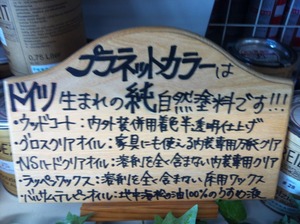 プラネットカラーは
ドイツ生まれの純自然塗料です!!!
・ウッドコート：内外装併用着色半透明仕上げ
・グロスクリアオイル：家具にも使える内装専用万能クリア
・NSハードクリアオイル：溶剤を全く含まない内装専用クリア
・ラッペンワックス：溶剤を全く含まない床用ワックス
・バルサムテレピンオイル：地中海松の油100%のうすめ液
0.75 Liter